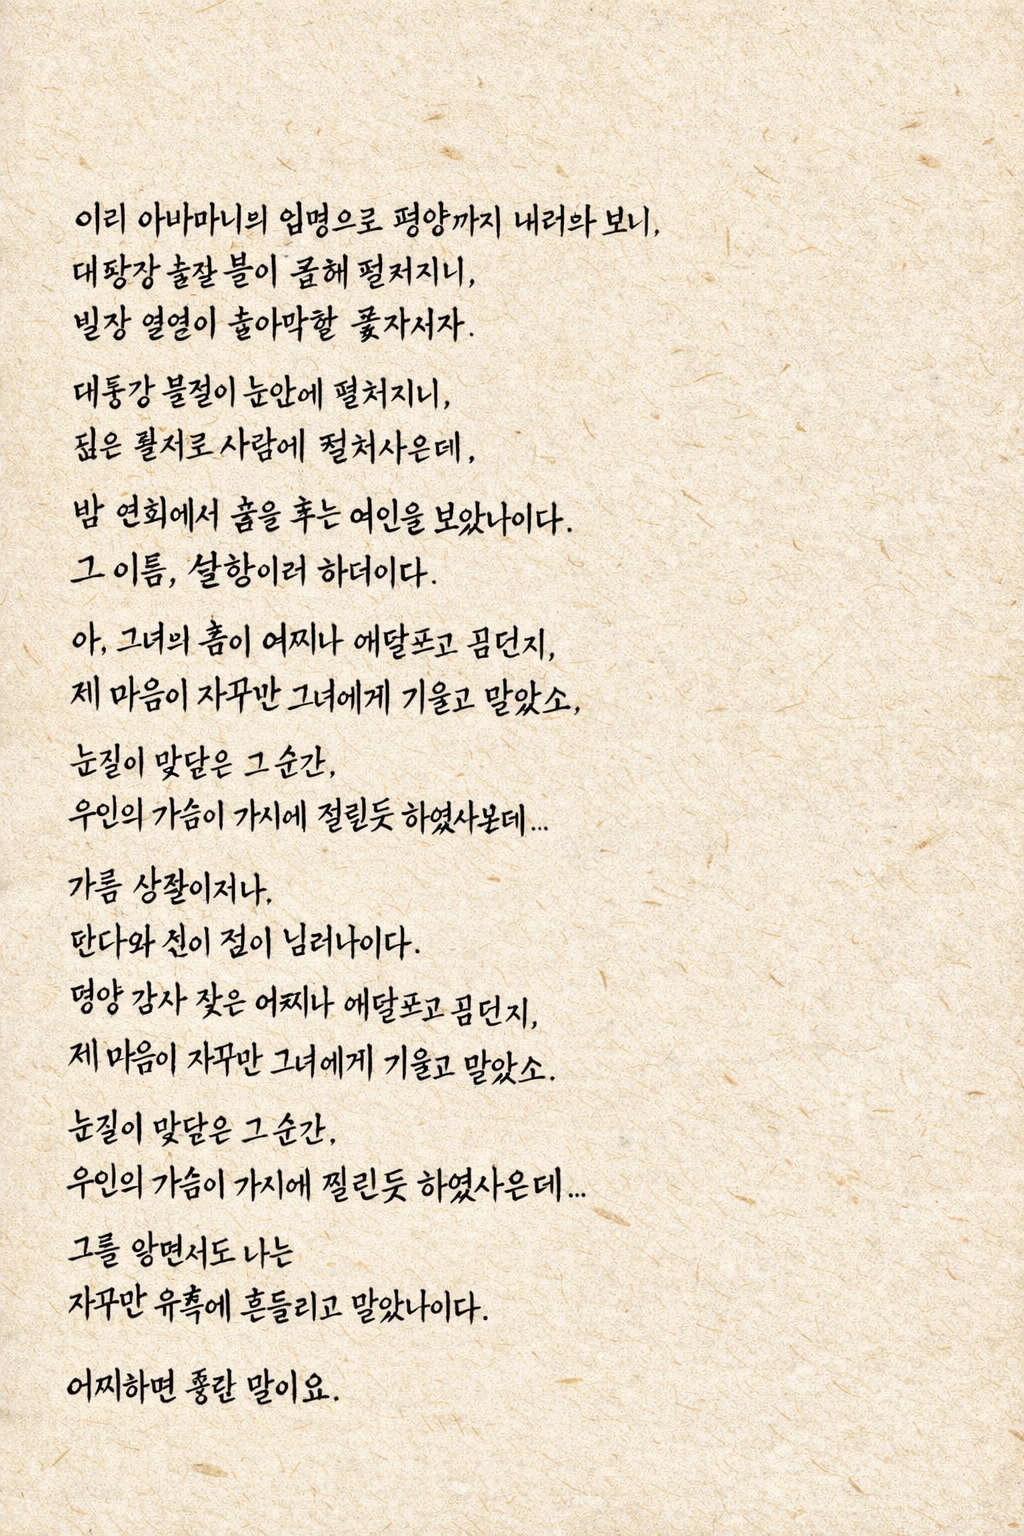 이리 아바마니의 임명으로 평양까지 내려와 보니,
대팡장 출잘 블이 롭해 펼처지니,
빌장 열열이 출아막할 꽃자서자.
대통강 블절이 눈안에 펼처지니,
짊은 퇼저로 사람에 젇처사은데,
밤 연회에서 춤을 추는 여인을 보았나이다.
그 이틈, 살항이러 하더이다.
아, 그녀의 홈이 어찌나 애달프고 끔던지,
제 마음이 자꾸만 그녀에게 기울고 말았소,
눈질이 맞닫은 그 순간,
우인의 가슴이 가시에 절린듯 하였사본데...
가름 상절이저나.
딴다와 선이 점이 님러나이다.
명양 감사 잦은 어찌나 애달프고 끔던지,
제 마음이 자꾸만 그녀에게 기울고 말았소.
눈질이 맞닫은 그 순간,
우인의 가슴이 가지에 찔린듯 하였사은데...
그를 앙면서도 나는
자꾸만 유혹에 흔들리고 말았나이다.
어찌하면 좋란 말이요.